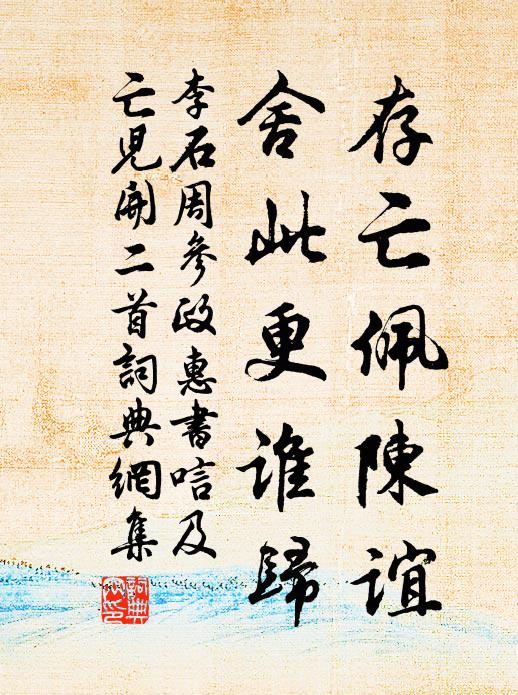 存亡佩陳誼
舍此更谁歸
李石周參政惠書唁及
亡児開二首詞典網集